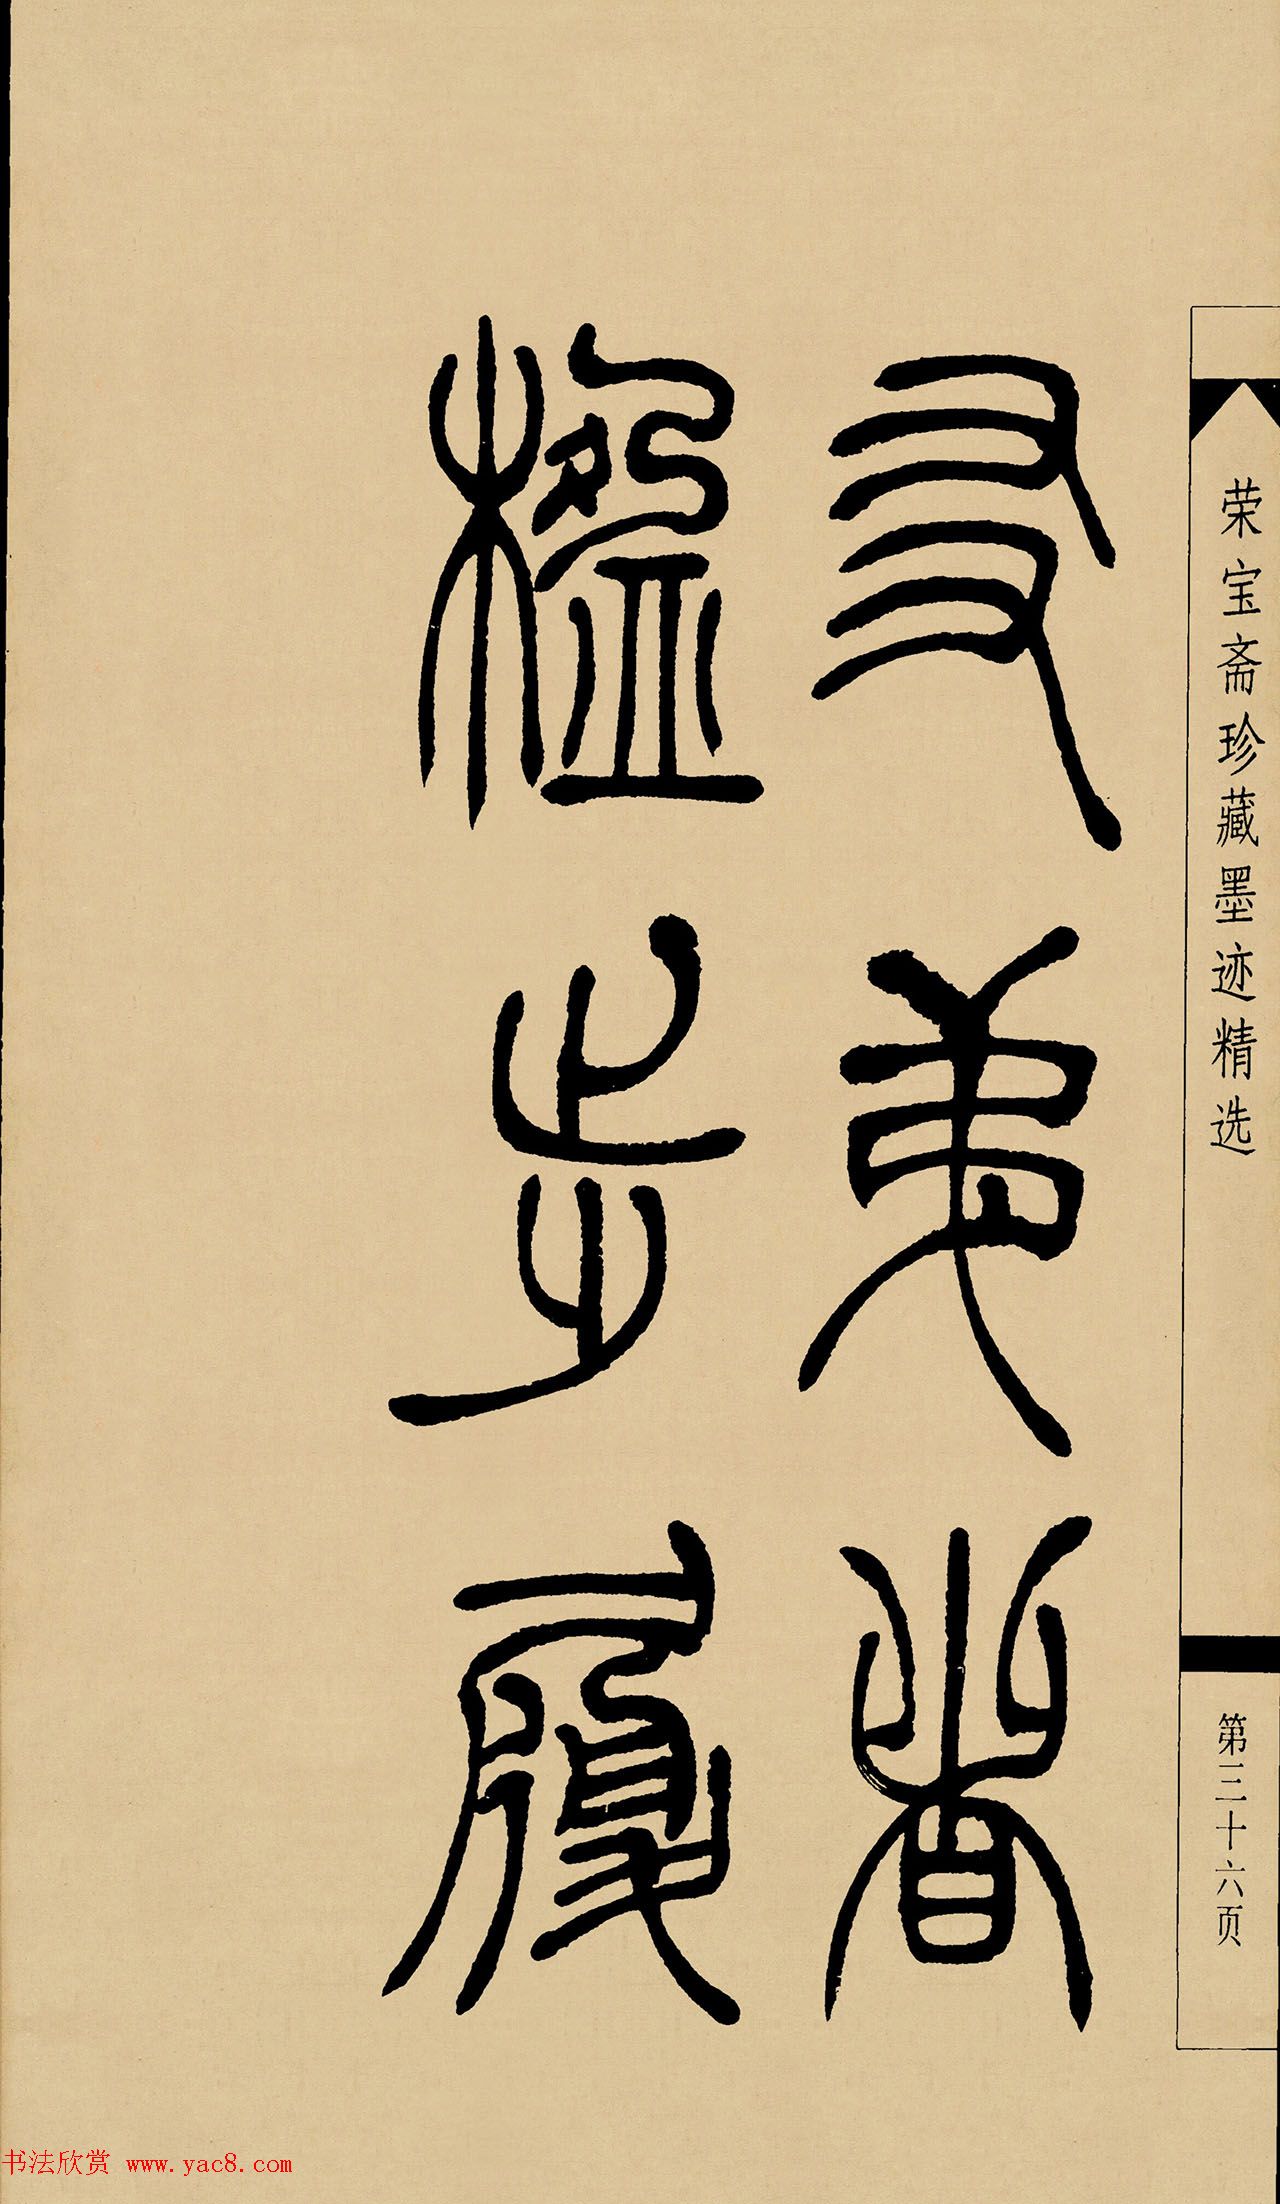 友弟春
楹步履
荣宝斋珍藏墨迹精选
第三十六页
书法欣赏 www.yac8.com